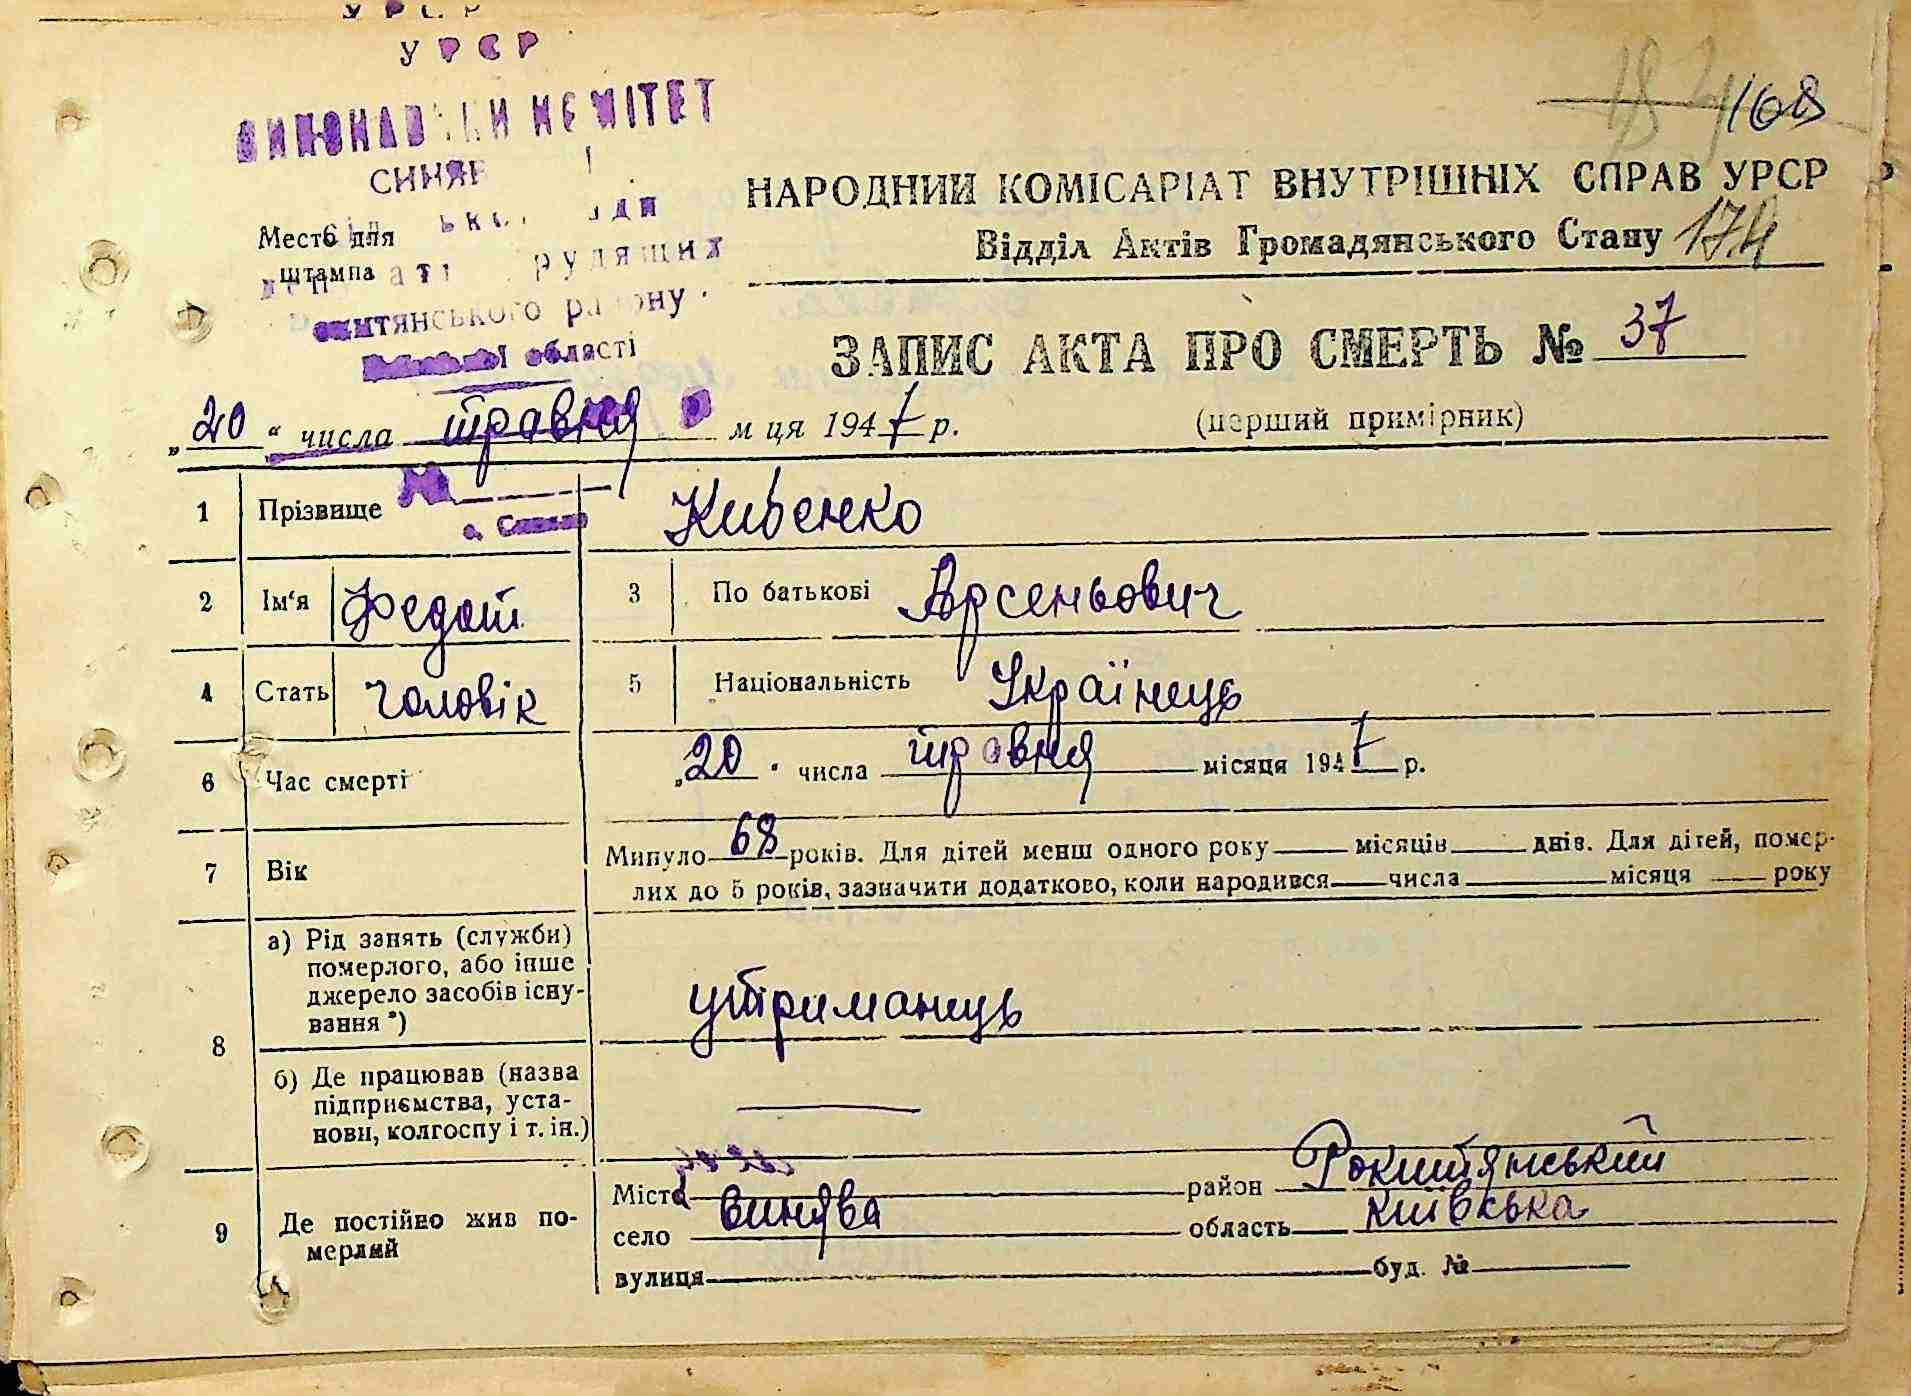 УРСР
УРСР
ВИКОНАВЧИЙ КОМІТЕТ
168
174
НАРОДНИЙ КОМІСАРІАТ ВНУТРІШНІХ СПРАВ УРСР
Відділ Актів Громадянського Стану
Место для
штампа
трудящих
району
області
ЗАПИС АКТА ПРО СМЕРТЬ № 37
„20“ числа травня м ця 1947 р.
(перший примірник)
1 Прізвище Кивенко
2 Ім‘я Федот 3 По батькові Арсеньович
4 Стать чоловік 5 Національність Українець
6 Час смерті „20“ числа травня місяця 1947 р.
7 Вік Минуло 68 років. Для дітей менш одного року місяців днів. Для дітей, помер-
лих до 5 років, зазначити додатково, коли народився числа місяця року
8 а) Рід занять (служби)
померлого, або інше
джерело засобів існу-
вання *)
утриманець
б) Де працював (назва
підприємства, уста-
нови, колгоспу і т. ін.)
9 Де постійно жив по-
мерлий
Місто район Рокитянський
село Синява область Київська
вулиця буд. №